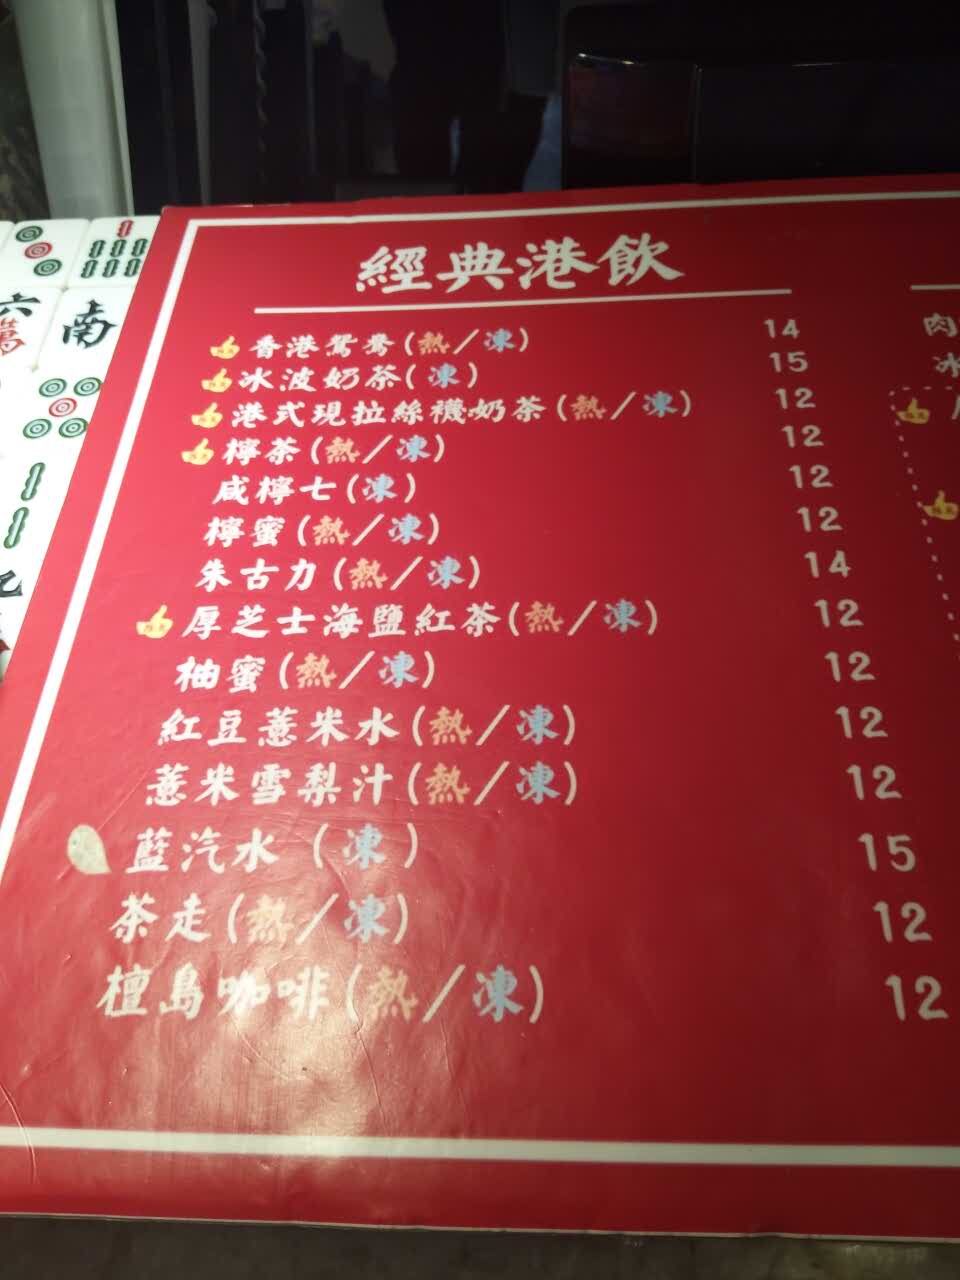 經典港飲
香港鴛鴦(熱/凍) 14
冰波奶茶(凍) 15
港式現拉絲襪奶茶(熱/凍) 12
檸茶(熱/凍) 12
咸檸七(凍) 12
檸蜜(熱/凍) 12
朱古力(熱/凍) 14
厚芝士海鹽紅茶(熱/凍) 12
柚蜜(熱/凍) 12
紅豆薏米水(熱/凍) 12
薏米雪梨汁(熱/凍) 12
藍汽水(凍) 15
茶走(熱/凍) 12
檀島咖啡(熱/凍) 12
肉
冰
六萬
南